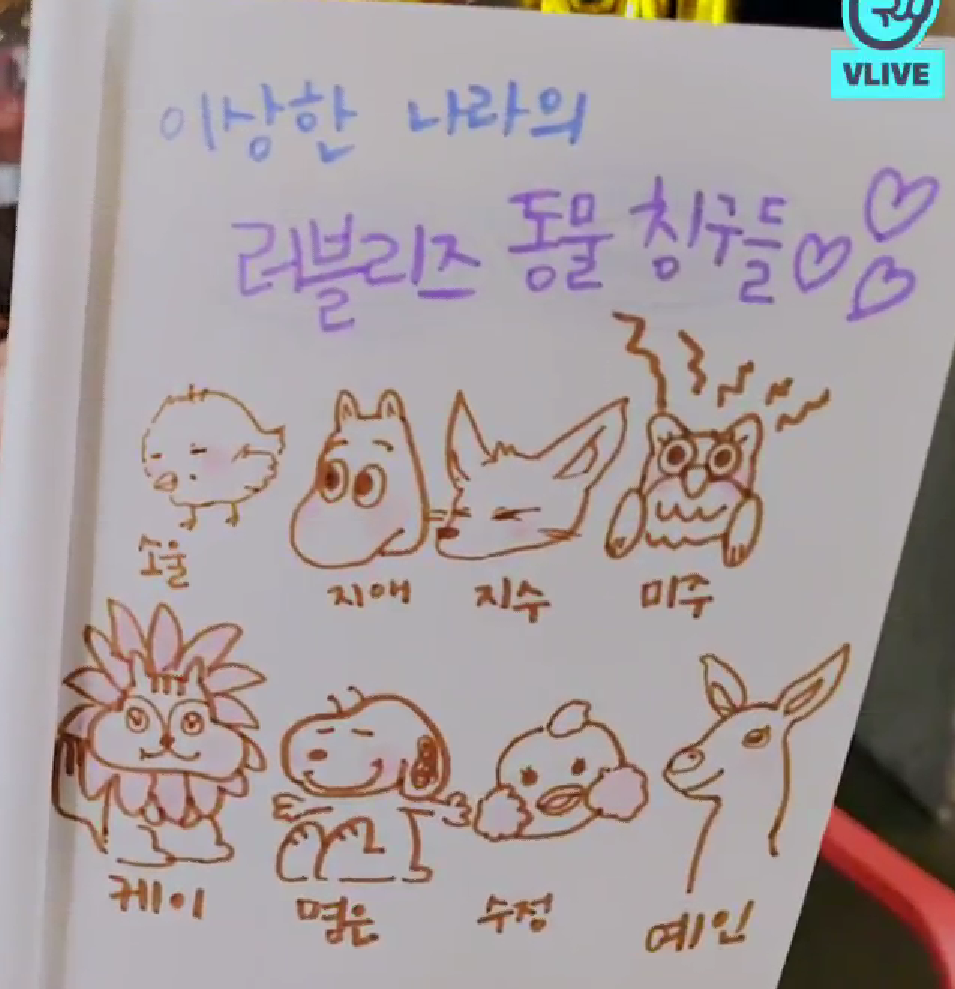 VLIVE
이상한 나라의
러블리즈 동물 칭구들♡♡♡
소울 지애 지수 미주
케이 명은 수정 예인